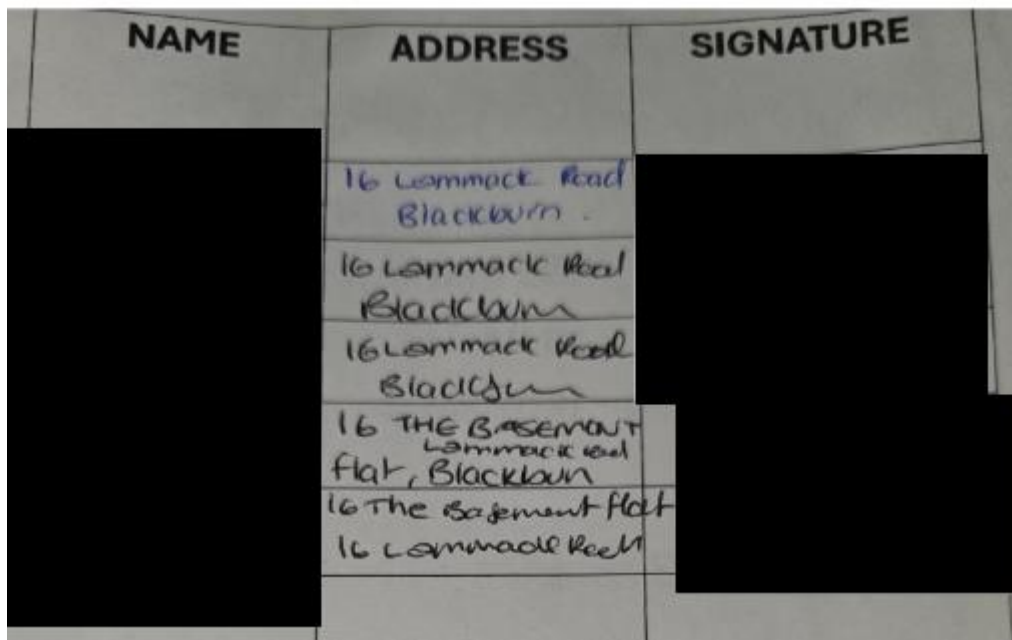 NAME ADDRESS SIGNATURE
16 Lammack Road
Blackburn.
16 Lammack Road
Blackburn
16 Lammack Road
Blackburn
16 THE BASEMONT
Lammack road
flat, Blackburn
16 The Basement flat
16 Lammack